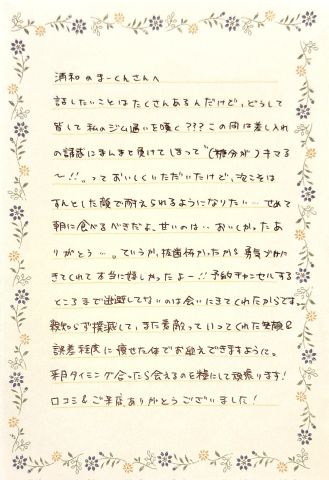 浦和のまーくんさんへ
話したいことはたくさんあるんだけど、どうして
皆して私のジム通いを嘆く??? この間は差し入れ
の誘惑にまんまと負けてしまって"(糖分が)キマる
〜!!。っておいしくいただいたけど、次こそは
すんとした顔で耐えられるようになりたい… せめて
朝に食べるべきだよ、甘いのは‥おいしかったあ
りがとう…。ていうか、抜歯怖かったから勇気づけに
きてくれて本当に嬉しかったよー!! 予約キャンセルする
ところまで逃避してないのは会いにきてくれたからです。
親知らず撲滅して、また素敵っていってくれた笑顔&
誤差程度に痩せた体でお迎えできますように。
来月タイミング合ったら会えるのを糧にして頑張ります!
口コミ&ご来店ありがとうございました!